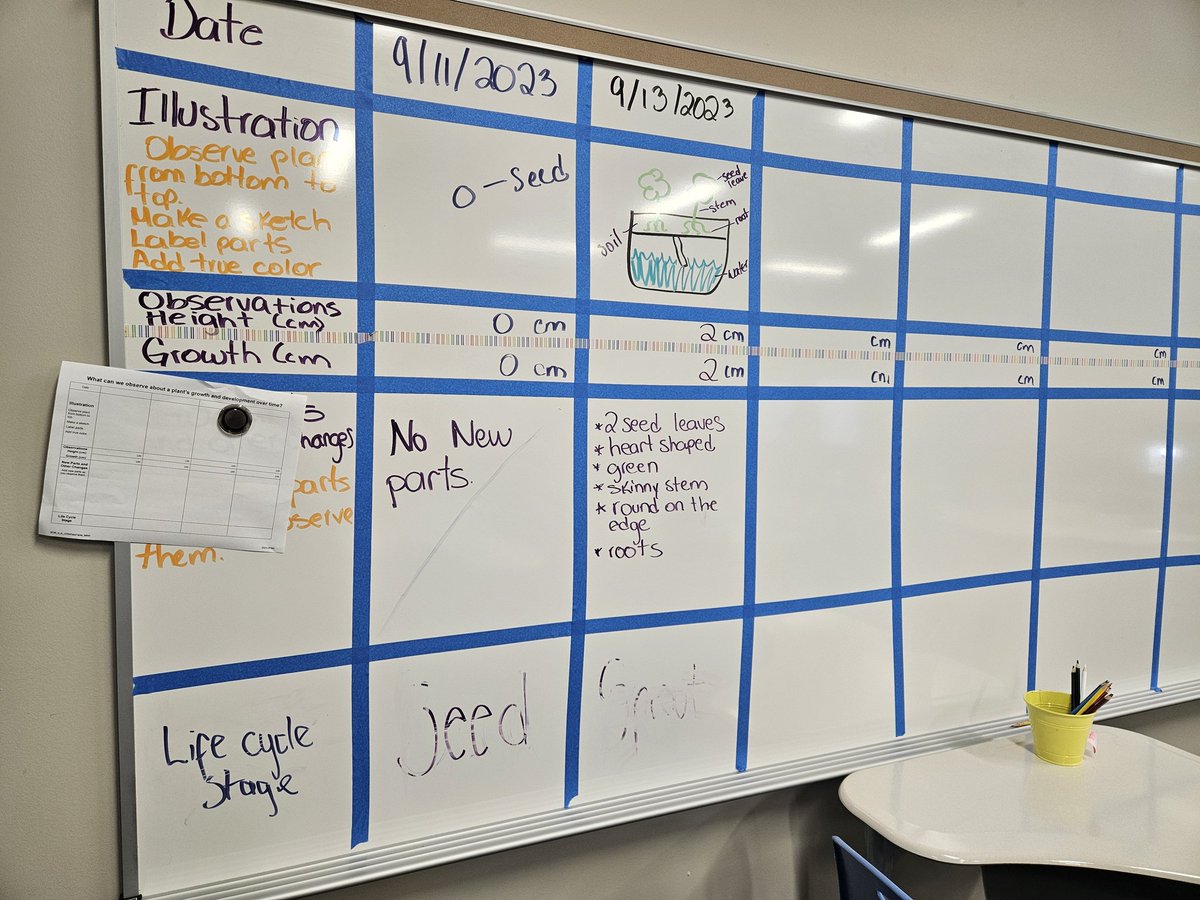 Date
9/11/2023
9/13/2023
Illustration
Observe plan
from bottom to
top.
Make a sketch
Label parts
Add true color
o - seed
seed
leave
stem
root
soil
water
Observations
Height (cm)
0 cm
2 cm
cm
cm
cm
Growth (cm
0 cm
2 cm
cm
cm
cm
What can we observe about a plant's growth and development over time?
Date
Illustration
Observe plant
from bottom to
top.
Make a sketch
Label parts
Add true color
Observations
Height (cm)
Growth (cm)
New Parts and
Other Changes
Life Cycle
Stage
s
hanges)
parts
serve
them.
No New
parts.
*2 seed leaves
* heart shaped
* green
* skinny stem
* round on the
edge
* roots
Life cycle
Stage
Seed